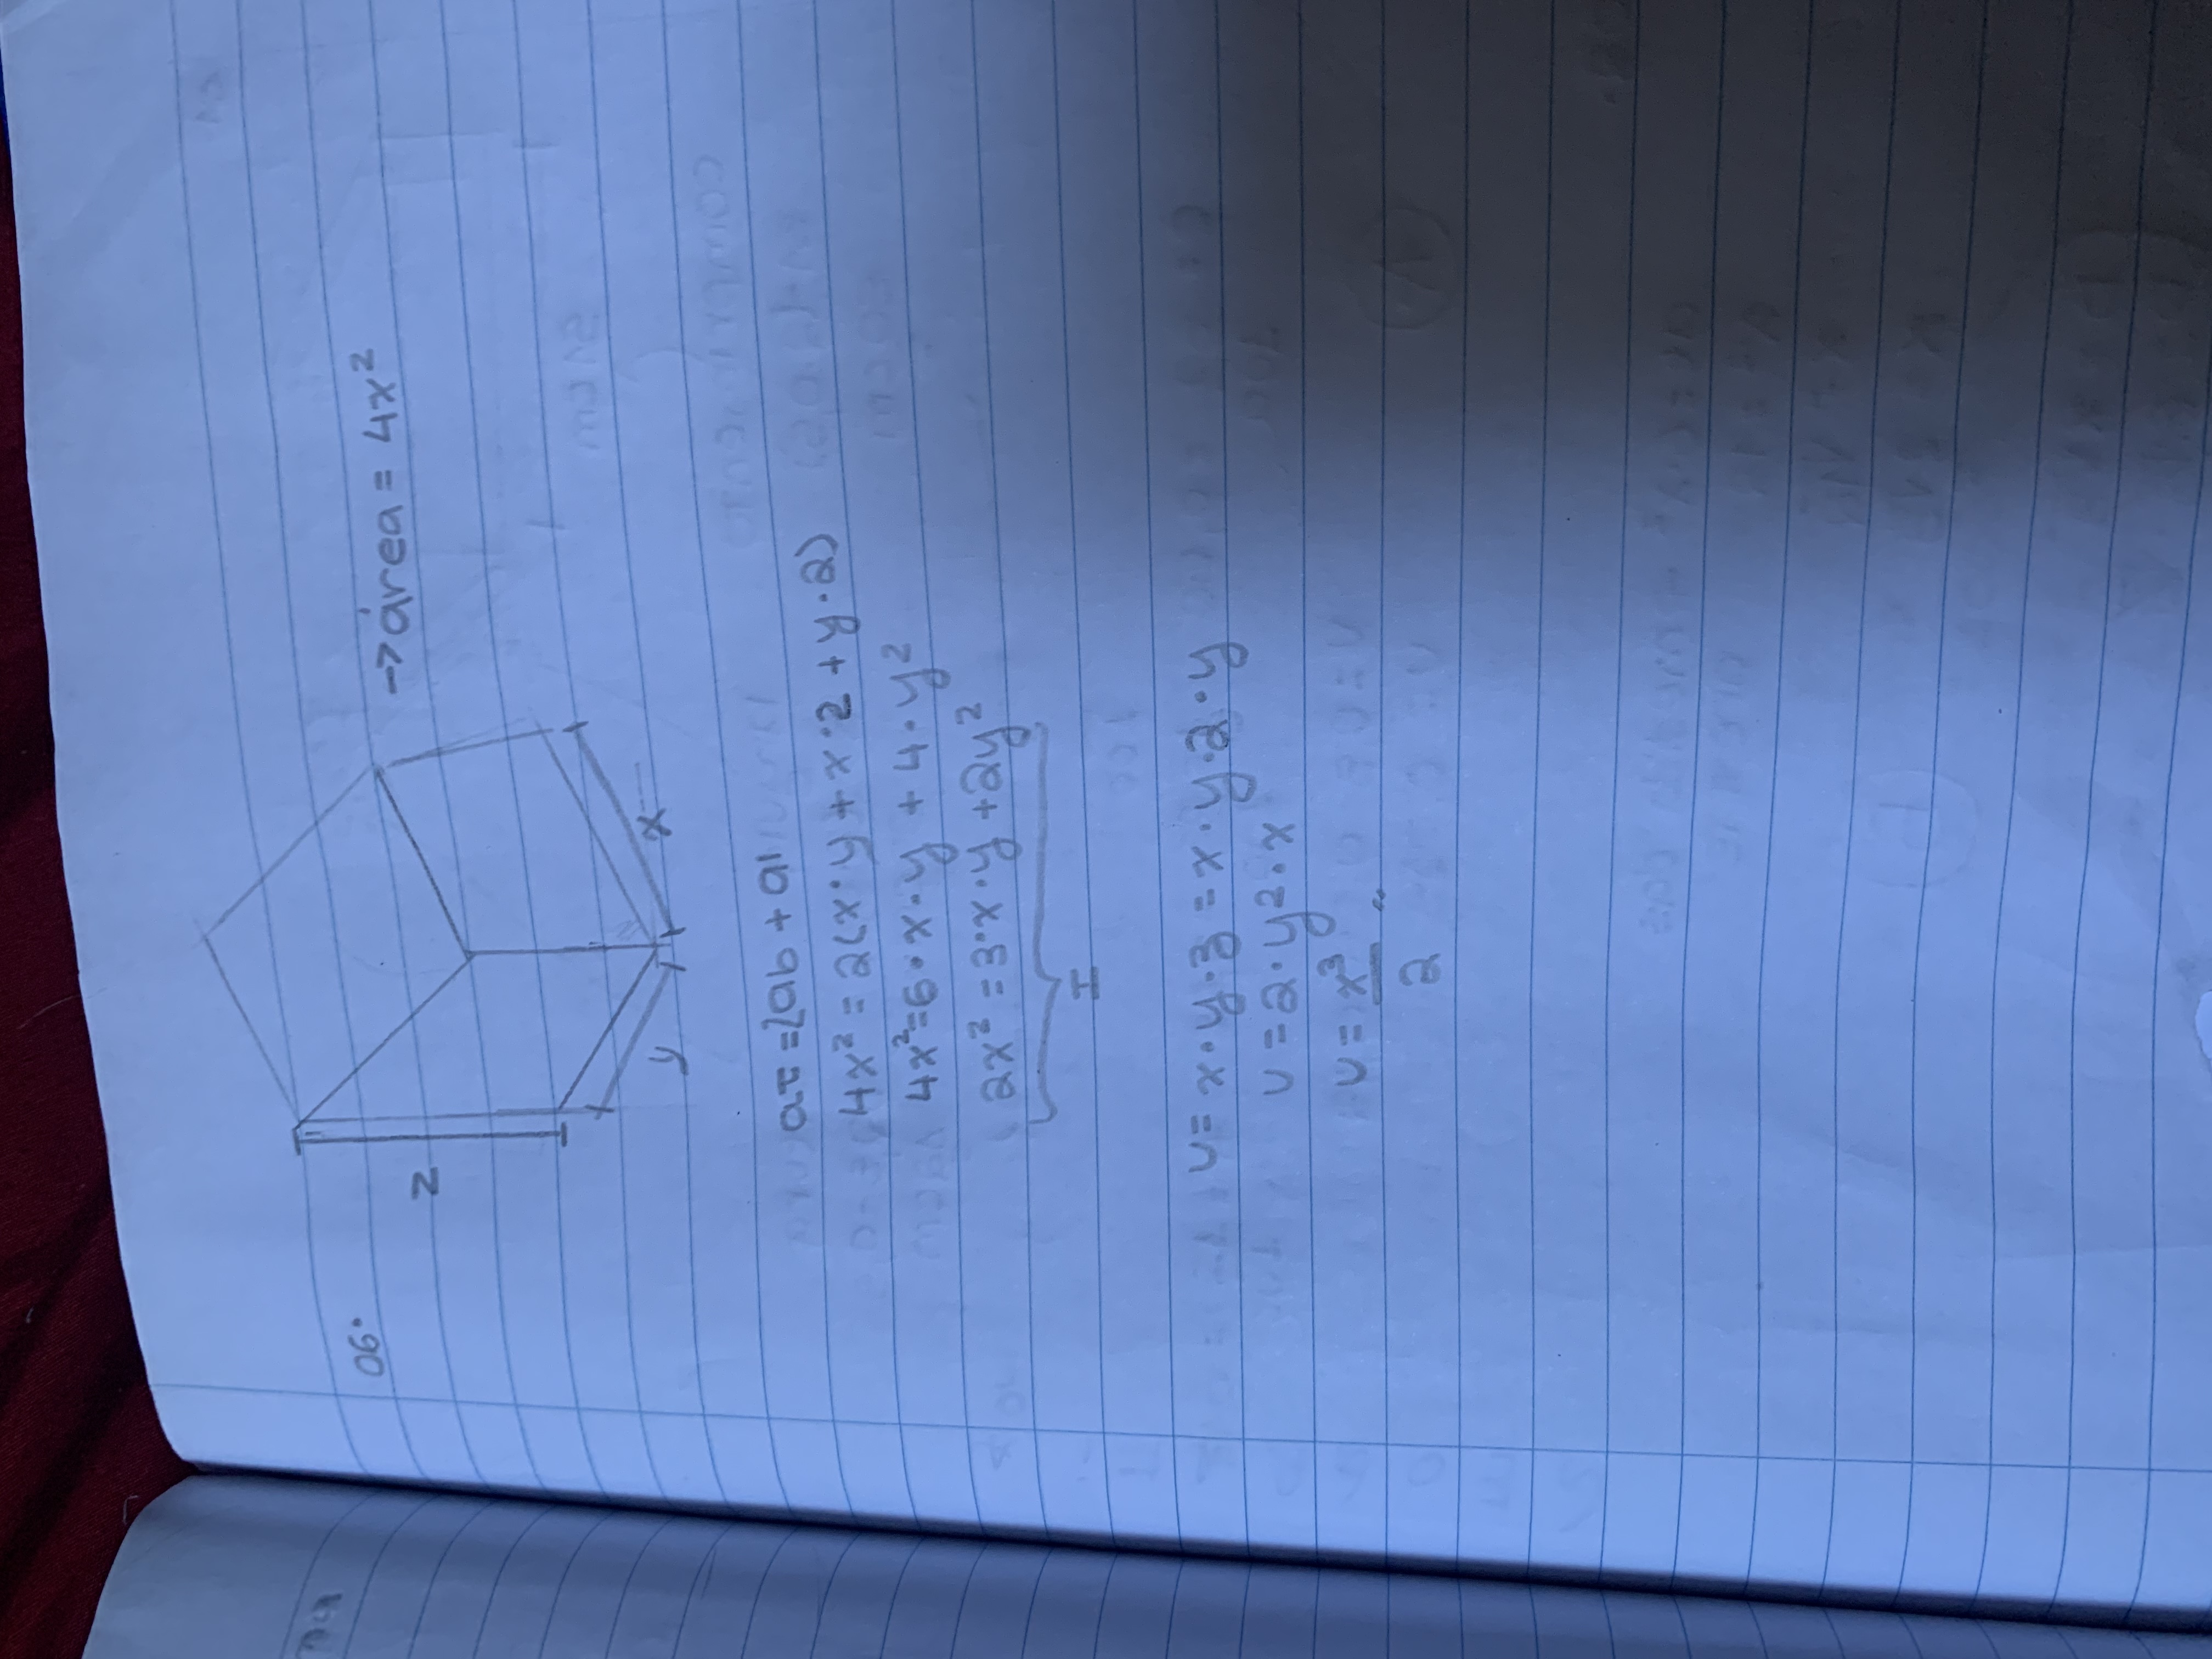 06.
z
→ área = 4x²
y
x
aT = 2ab + al
4x² = 2(x·y + x·2 + y·2)
4x² = 6·x·y + 4·y²
2x² = 3·x·y + 2y²
I
V = x·y·z = x·y·2·y
V = 2·y²·x
V = x³/2